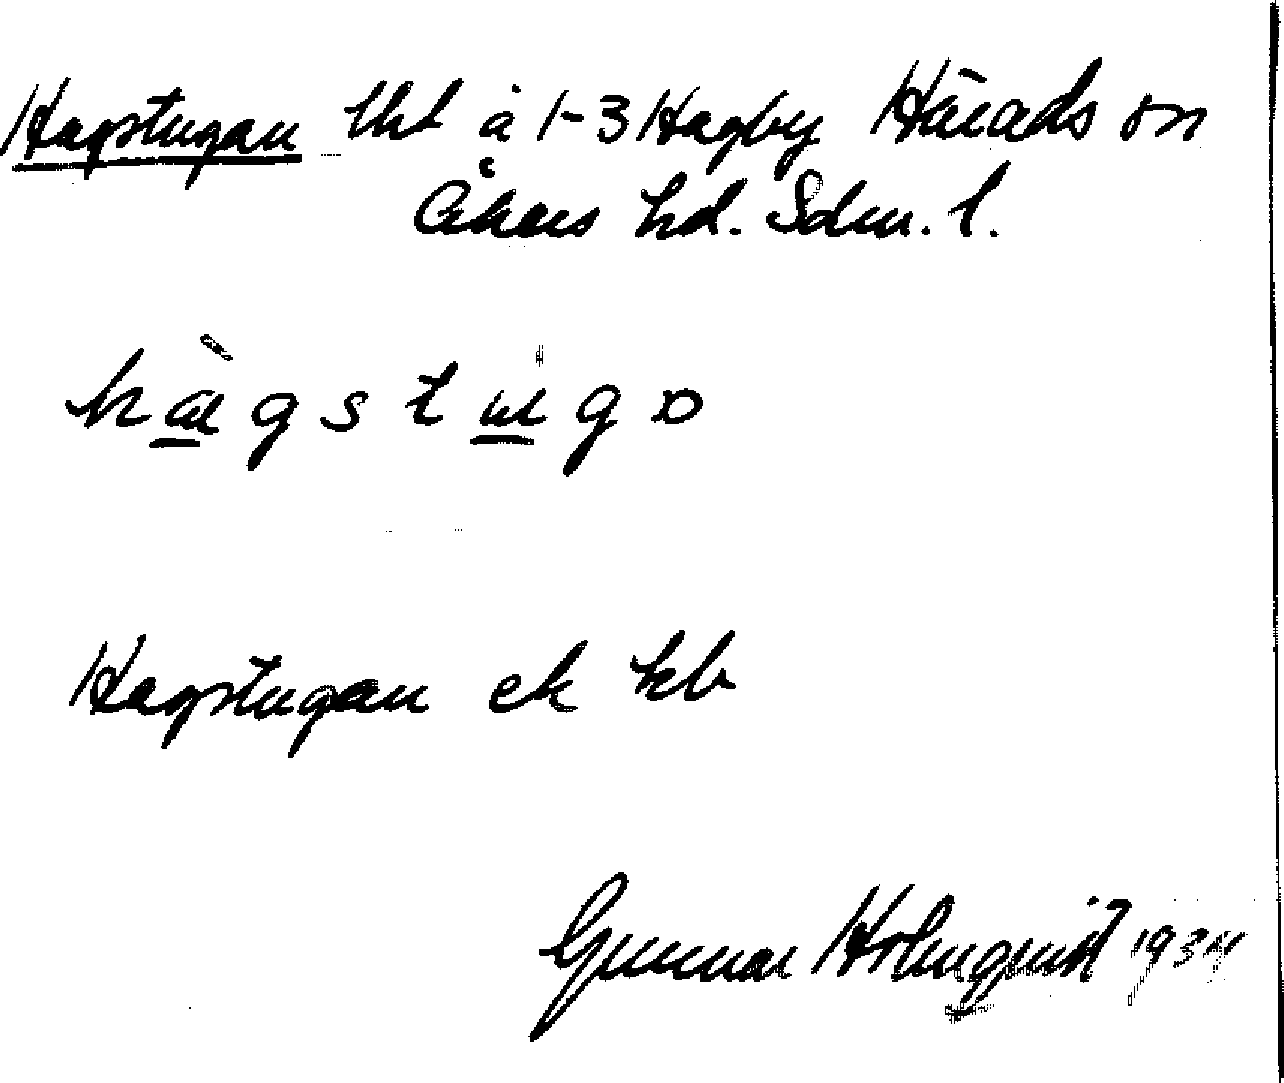 Hagstugan tht å 1-3 Hagby Härads sn
Åkers hd. Sdm. l.
hàgstugo
Hagstugan ek kb
Gunnar Holmquist 1934